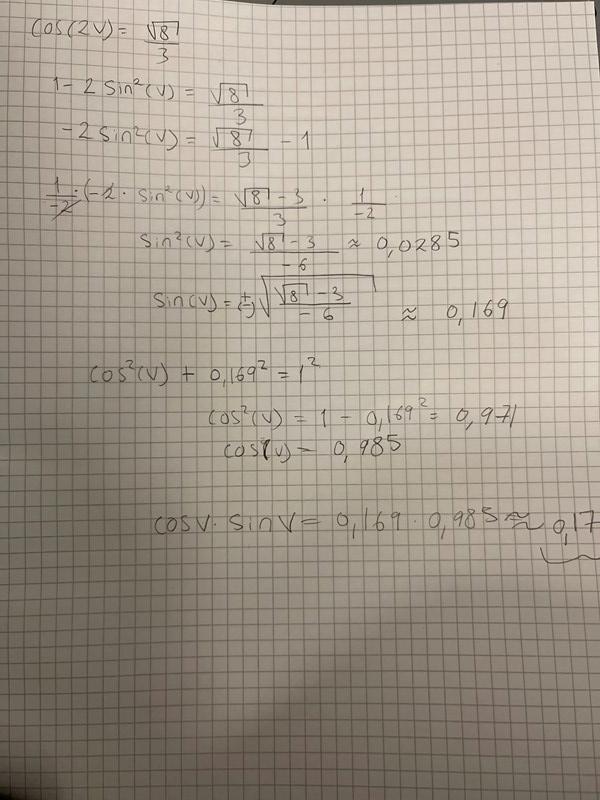 cos(2v) = √8/3
1 - 2 sin²(v) = √8/3
-2 sin²(v) = √8/3 - 1
1/-2 · (-2 · sin²(v)) = √8 - 3/3 · 1/-2
sin²(v) = √8 - 3/-6 ≈ 0,0285
sin(v) = (±) √(√8 - 3/-6) ≈ 0,169
cos²(v) + 0,169² = 1²
cos²(v) = 1 - 0,169² = 0,971
cos(v) = 0,985
cosv · sinv = 0,169 · 0,985 ≈ 0,17